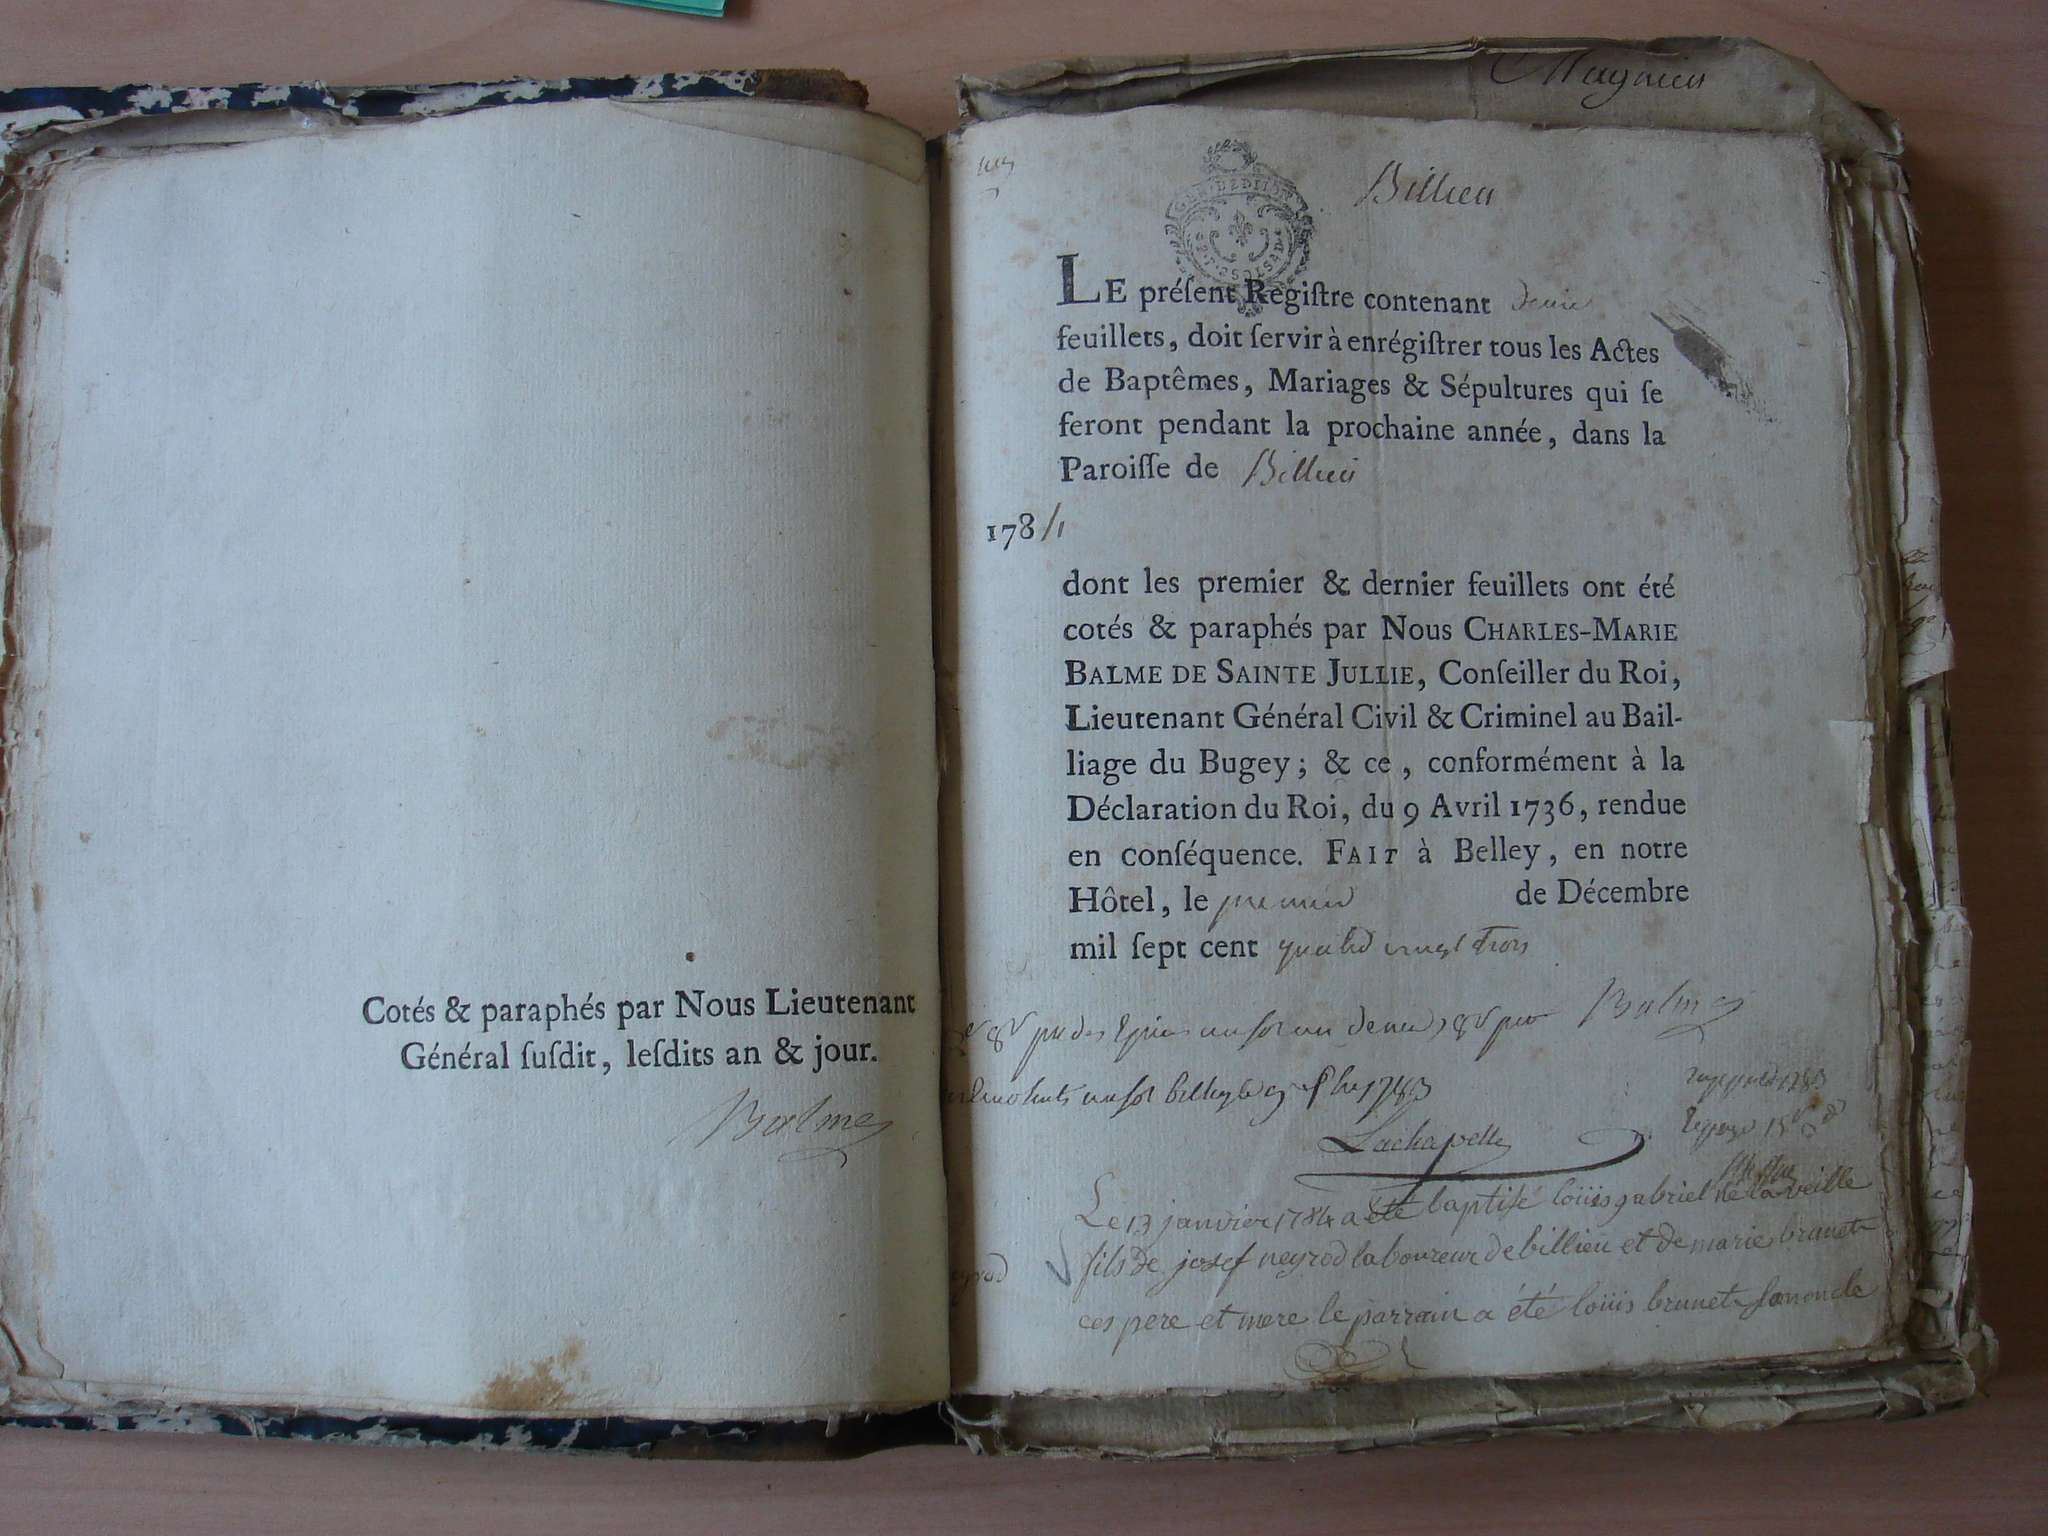 Cotés & paraphés par Nous Lieutenant
Général ſuſdit, leſdits an & jour.
Balme
Magnieu
Billieu
LE préſent Regiſtre contenant
feuillets, doit ſervir à enrégiſtrer tous les Actes
de Baptêmes, Mariages & Sépultures qui ſe
feront pendant la prochaine année, dans la
Paroiſſe de Billieu
178
dont les premier & dernier feuillets ont été
cotés & paraphés par Nous CHARLES-MARIE
BALME DE SAINTE JULLIE, Conſeiller du Roi,
Lieutenant Général Civil & Criminel au Bail-
liage du Bugey; & ce, conformément à la
Déclaration du Roi, du 9 Avril 1736, rendue
en conſéquence. FAIT à Belley, en notre
Hôtel, le premier de Décembre
mil ſept cent quatre vingt trois
Balme
1783
Lachapelle
Le 13 janvier 1784 a été baptisé loüis gabriel né la veille
fils de josef neyrod laboureur de billieu et de marie brunet
ces pere et mere le parrain a été loüis brunet son oncle